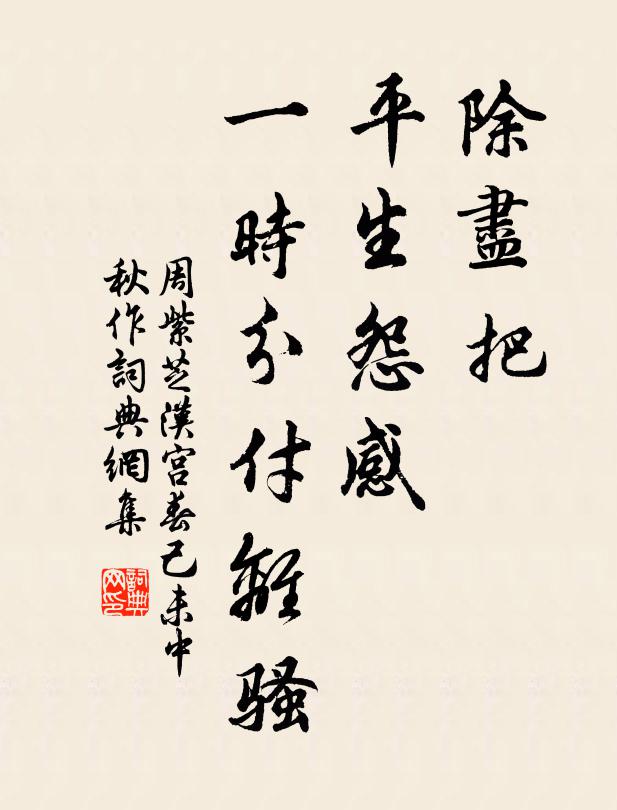 除盡把
平生怨感
一時分付離騷
周紫芝漢宮春己未中
秋作詞典網集
詞典
网印